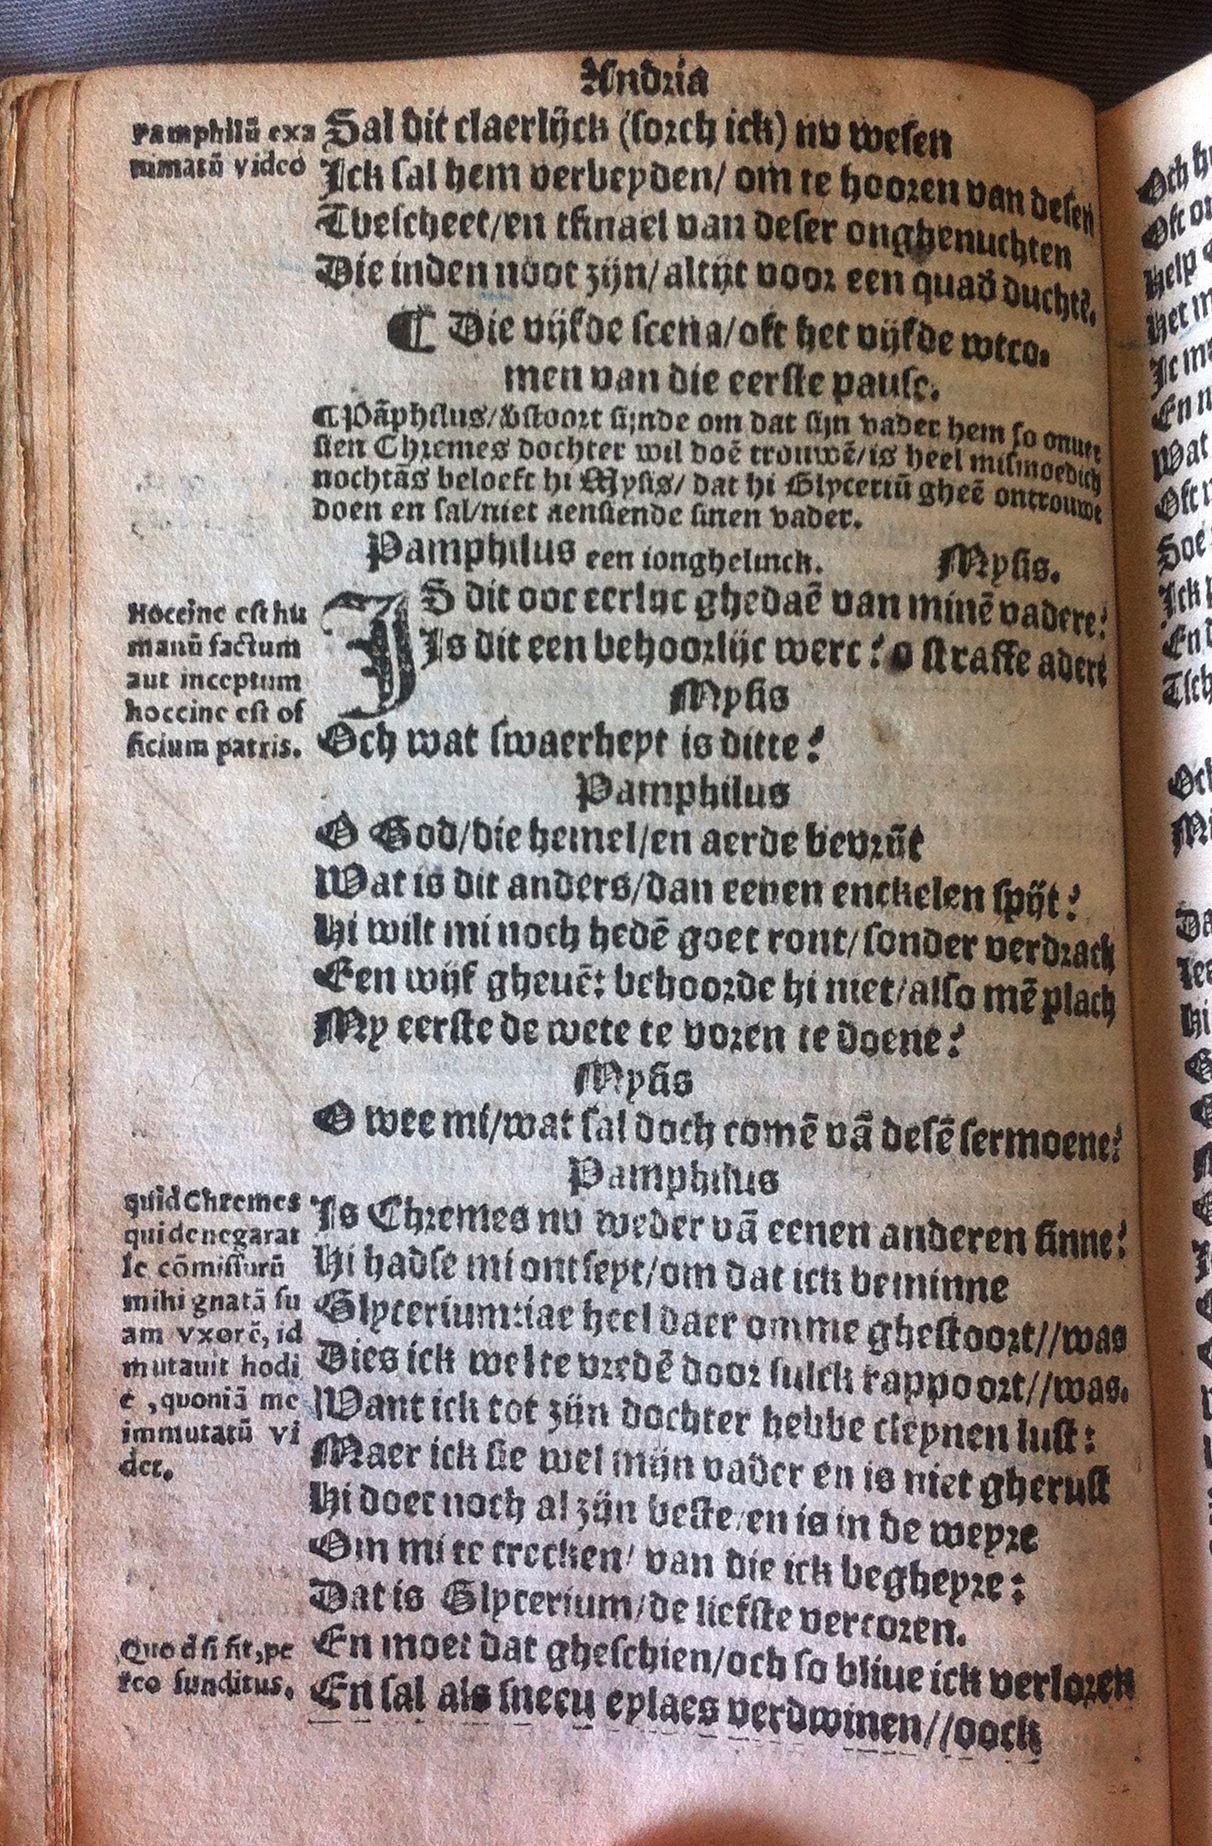 Andria
Pamphilũ exa
nimatũ video
Sal dit claerlijck (sorch ick) nv wesen
Ick sal hem verbeyden/ om te hooren van desen
Tbescheet/en tfinael van deser onghenuchten
Die inden noot zijn/altijt voor een quad duchtẽ.
¶ Die vijfde scena/oft het vijfde wtco-
men van die eerste pause.
¶ Pãphilus/ v̄stoort sijnde om dat sijn vader hem so onuer
sien Chremes dochter wil doẽ trouwẽ/is heel mismoedich
nochtãs beloeft hi Mysis/ dat hi Glyceriũ gheẽ ontrouwe
doen en sal/niet aensiende sinen vader.
Pamphilus een ionghelinck. Mysis.
Hoccine est hu
manũ factum
aut inceptum
hoccine est of
ficium patris.
IS dit ooc eerlijc ghedaẽ van minẽ vadere?
Is dit een behoorlijc werc? o straffe aderẽ
Mysis
Och wat swaerheyt is ditte?
Pamphilus
O God/die hemel/en aerde bevrijt
Wat is dit anders/dan eenen enckelen spijt?
Hi wilt mi noch hedẽ goet ront/sonder verdrach
Een wijf gheuẽ: behoorde hi niet/also mẽ plach
My eerste de wete te voren te doene?
Mysis
O wee mi/wat sal doch comẽ vã desẽ sermoene?
Pamphilus
quid Chremes
qui denegarat
se cõmissurũ
mihi gnatã su
am vxorẽ, id
mutauit hodi
e, quoniã me
immutatũ vi
det.
Is Chremes nv weder vã eenen anderen sinne?
Hi hadse mi ontseyt/om dat ick beminne
Glycerium:iae heel daer omme ghestoort//was
Dies ick welte vredẽ door sulck rappoort//was.
Want ick tot zijn dochter hebbe cleynen lust:
Maer ick sie wel mijn vader en is niet gherust
Hi doet noch al zijn beste/en is in de weyre
Om mi te trecken/ van die ick begheyre:
Dat is Glycerium/de liefste vercoren.
Quod si fit, pe
reo funditus.
En moet dat gheschien/och so bliue ick verloren
En sal als sneeu eylaes verdwinen//oock